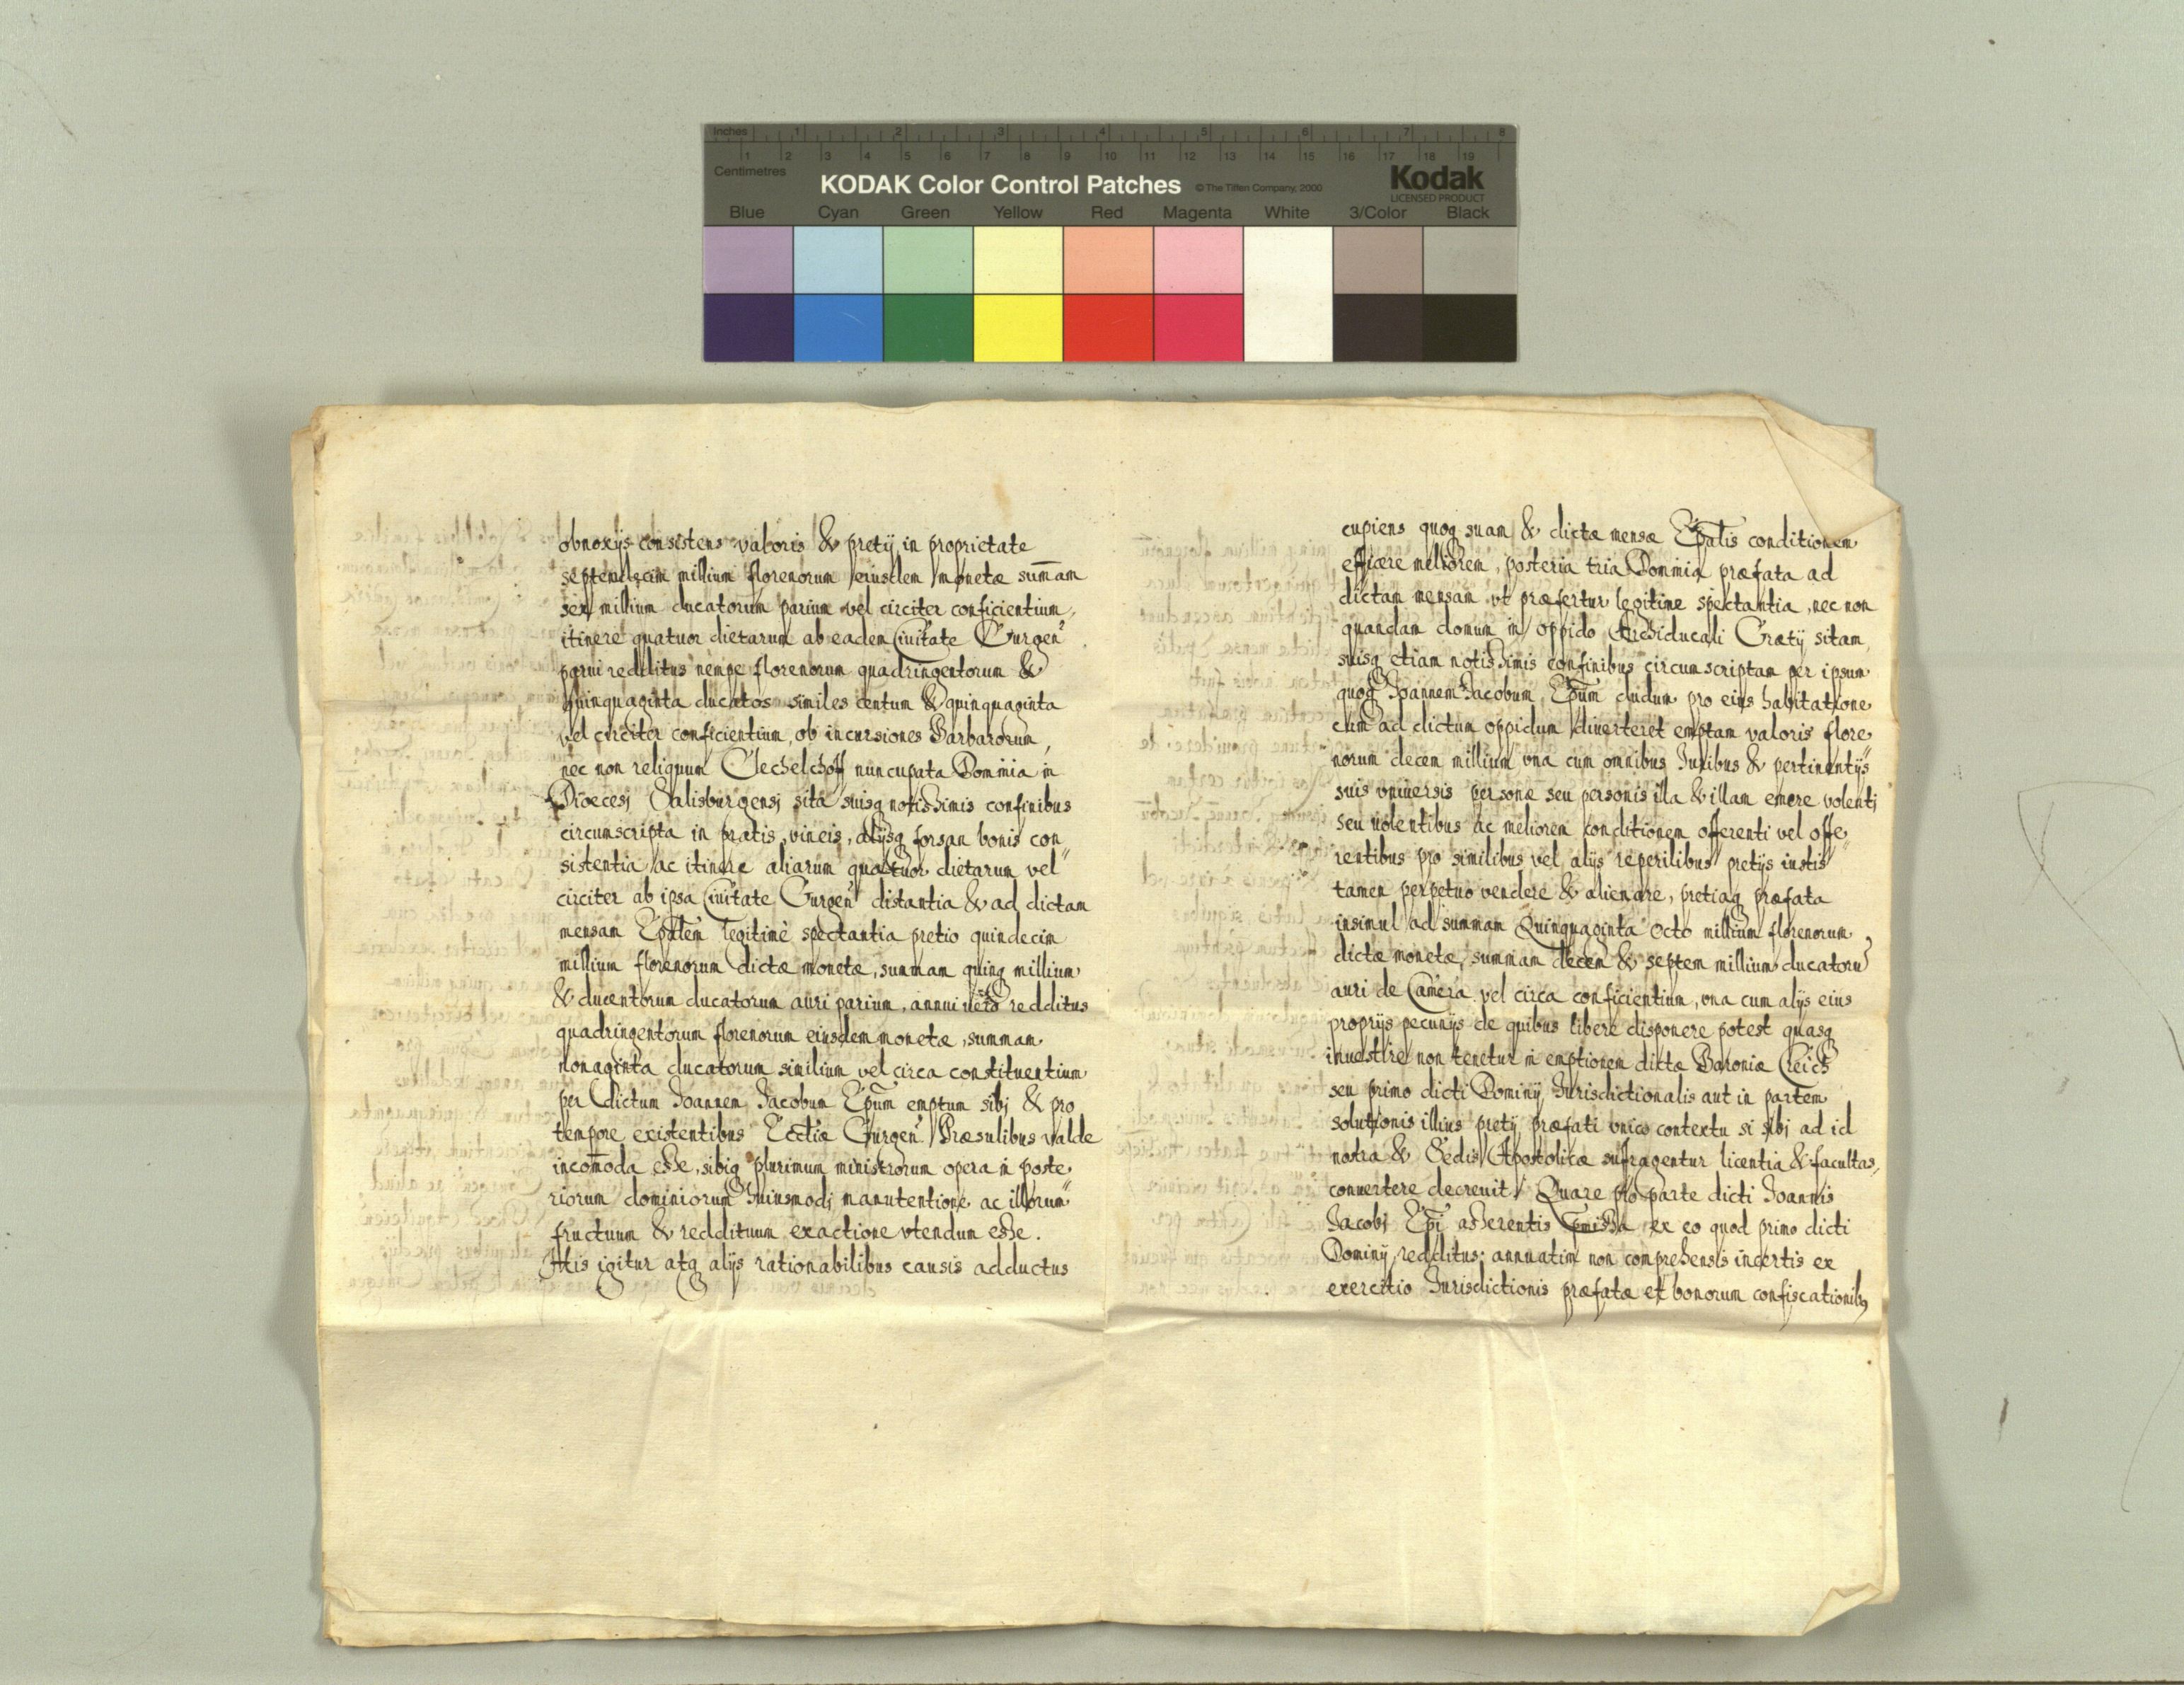 Inches 1 2 3 4 5 6 7 8
1 2 3 4 5 6 7 8 9 10 11 12 13 14 15 16 17 18 19
Centimetres
KODAK Color Control Patches © The Tiffen Company, 2000 Kodak
LICENSED PRODUCT
Blue Cyan Green Yellow Red Magenta White 3/Color Black
obnoxijs consistens valoris & pretij in proprietate
septemdecim millium florenorum eiusdem monetæ sum̄am
sex millium ducatorum parium vel circiter conficientium,
itinere quatuor dietarum ab eadem Ciuitate Gurgen̄
parui redditus nempe florenorum quadringentorum &
quinquaginta ducatos similes centum & quinquaginta
vel circiter conficientium, ob incursiones Barbarorum,
nec non reliquum nuncupata Dominia in
Dioecesi Salisburgensi sita suisq notissimis confinibus
circumscripta in pratis, vineis, alijsq forsan bonis con
sistentia ac itinere aliarum quatuor dietarum vel
circiter ab ipsa Ciuitate Gurgen̄ distantia & ad dictam
mensam Ep̄alem legitimè spectantia pretio quindecim
millium florenorum dictæ monetæ, summam quinq millium
& ducentorum ducatorum auri parium, annui uero redditus
quadringentorum florenorum eiusdem monetæ, summam
nonaginta ducatorum similium vel circa constituentium
per dictum Joannem Jacobum Ep̄um emptum sibi & pro
tempore existentibus Eccl̄iæ Gurgen̄ Præsulibus valde
incom̄oda esse, sibiq plurimum ministrorum opera in poste
riorum dominiorum huiusmodi manutentione ac illorum
fructuum & reddituum exactione vtendum esse.
His igitur atq alijs rationabilibus causis adductus
cupiens quoq suam & dictæ mensæ Ep̄alis conditionem
efficere meliorem, posteria tria Dominia præfata ad
dictam mensam vt præfertur legitime spectantia, nec non
quandam domum in oppido Archiducali Grætij sitam,
suisq etiam notissimis confinibus circumscriptam per ipsum
quoq Joannem Jacobum, Ep̄um dudum pro eius habitatione
cum ad dictum oppidum diuerteret emptam valoris flore
norum decem millium, vna cum omnibus Iuribus & pertinentijs
suis vniuersis personæ seu personis illa & illam emere volenti
seu uolentibus ac meliorem conditionem offerenti vel offe
rentibus pro similibus vel alijs reperilibus pretijs iustis
tamen perpetuo vendere & alienare, pretiaq præfata
insimul ad summam Quinquaginta Octo millium florenorum
dictæ monetæ, summam decem & septem millium ducatoru
auri de Camera vel circa conficientium, vna cum alijs eius
proprijs pecunijs de quibus libere disponere potest quasq
inuestire non tenetur in emptionem dictæ Baroniæ
seu primo dicti Dominij Jurisdictionalis aut in partem
solutionis illius pretij præfati vnico contextu si sibi ad id
nostra & Sedis Apostolicæ sufragentur licentia & facultas,
conuertere decreuit. Quare pro parte dicti Joannis
Jacobi Ep̄i asserentis ex eo quod primo dicti
Dominij redditus annuatim non comprehensis incertis ex
exercitio Jurisdictionis præfatæ et bonorum confiscationib